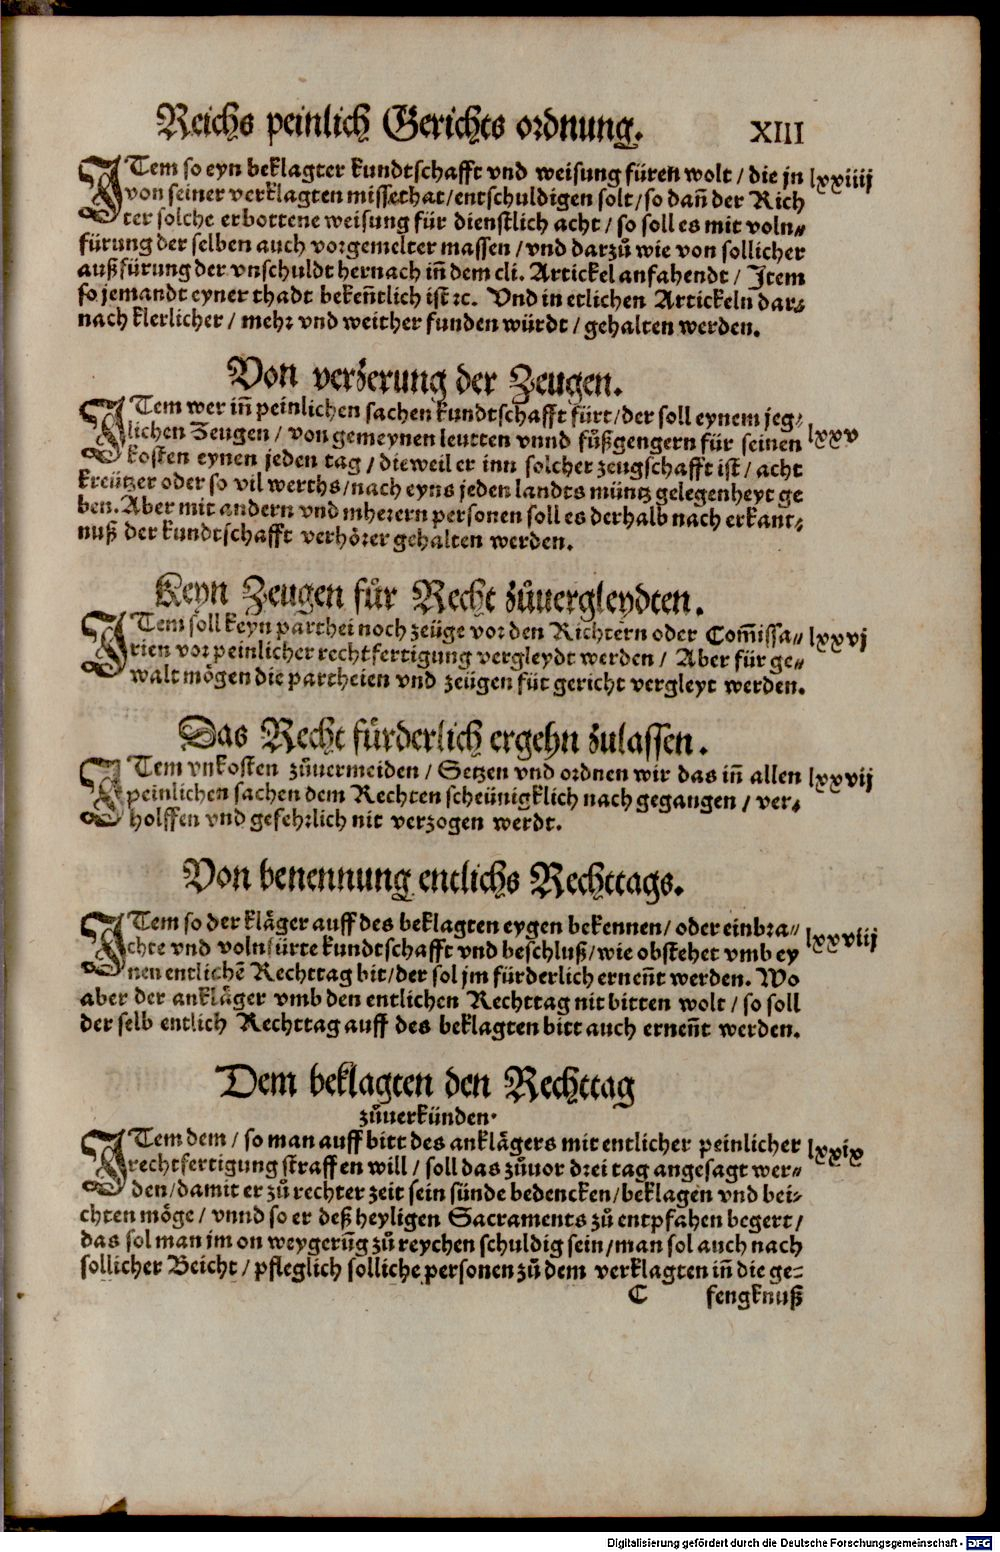 Reichs peinlich Gerichts ordnung. XIII
ITem so eyn beklagter kundtschafft vnd weisung füren wolt / die jn lxxiiij
von seiner verklagten missethat / entschuldigen solt / so dañ der Rich
ter solche erbottene weisung für dienstlich acht / so soll es mit voln⸗
fürung der selben auch vorgemelter massen / vnd darzů wie von sollicher
außfürung der vnschuldt hernach iñ dem cli. Artickel anfahendt / Item
so jemandt eyner thadt bekeñtlich ist ꝛc. Vnd in etlichen Artickeln dar⸗
nach klerlicher / mehr vnd weither funden würdt / gehalten werden.
Von verzerung der Zeugen.
ITem wer iñ peinlichen sachen kundtschafft fürt / der soll eynem jeg⸗
lichen Zeugen / von gemeynen leutten vnnd fůßgengern für seinen lxxv
kosten eynen jeden tag / dieweil er inn solcher zeugschafft ist / acht
kreützer oder so vil werths / nach eyns jeden landts müntz gelegenheyt ge
ben. Aber mit andern vnd mherern personen soll es derhalb nach erkant⸗
nuß der kundtschafft verhörer gehalten werden.
Keyn Zeugen für Recht zůuergleydten.
ITem soll keyn parthei noch zeüge vor den Richtern oder Com̃issa⸗ lxxvj
rien vor peinlicher rechtfertigung vergleydt werden / Aber für ge⸗
walt mögen die partheien vnd zeügen für gericht vergleyt werden.
Das Recht fürderlich ergehn zulassen.
ITem vnkosten zůuermeiden / Setzen vnd ordnen wir das iñ allen lxxvij
peinlichen sachen dem Rechten scheünigklich nach gegangen / ver⸗
holffen vnd gefehrlich nit verzogen werdt.
Von benennung entlichs Rechttags.
ITem so der kläger auff des beklagten eygen bekennen / oder einbra⸗
chte vnd volnfürte kundtschafft vnd beschluß / wie obstehet vmb ey lxxviij
nen entlichẽ Rechttag bit / der sol jm fürderlich erneñt werden. Wo
aber der ankläger vmb den entlichen Rechttag nit bitten wolt / so soll
der selb entlich Rechttag auff des beklagten bitt auch erneñt werden.
Dem beklagten den Rechttag
zůuerkünden.
ITem dem / so man auff bitt des anklägers mit entlicher peinlicher lxxix
rechtfertigung straffen will / soll das zůuor drei tag angesagt wer⸗
den / damit er zů rechter zeit sein sünde bedencken / beklagen vnd bei⸗
chten möge / vnnd so er deß heyligen Sacraments zů entpfahen begert /
das sol man jm on weygerũg zů reychen schuldig sein / man sol auch nach
sollicher Beicht / pfleglich solliche personen zů dem verklagten iñ die ge⸗
C fengknuß
Digitalisierung gefördert durch die Deutsche Forschungsgemeinschaft - DFG